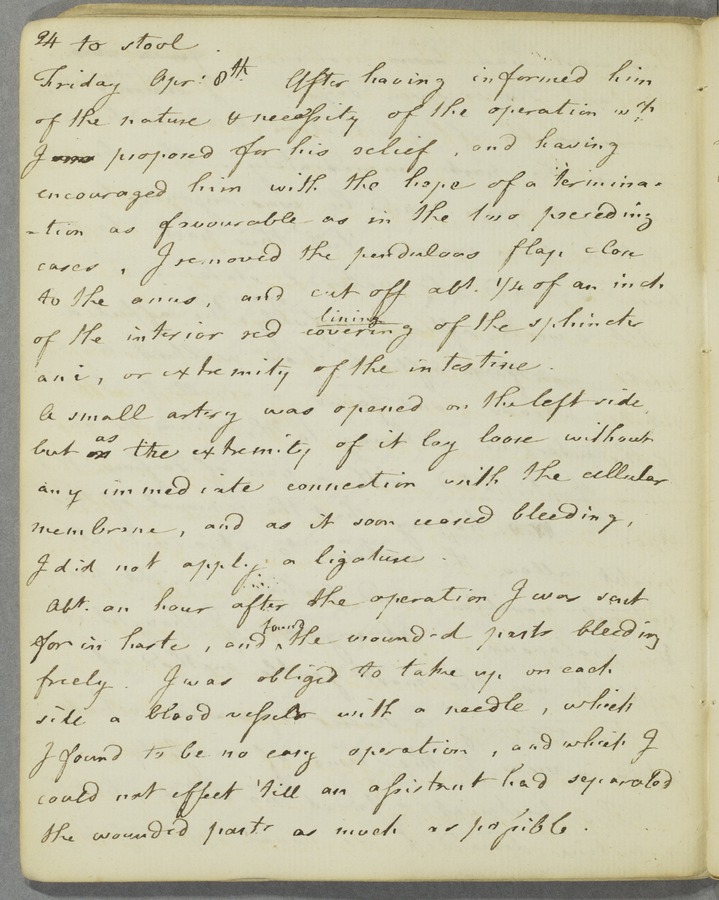 94 to stool.
Friday Apr: 8th. After having informed him
of the nature & necessity of the operation wch.
I proposed for his relief, and having
encouraged him with the hope of a termina-
-tion as favourable as in the two preceding
cases, I removed the pendulous flap close
to the anus, and cut off abt. 1/4 of an inch
of the interior red covering lining of the sphincter
ani, or extremity of the intestine.
A small artery was opened on the left side
but as the extremity of it lay loose without
any immediate connection with the cellular
membrane, and as it soon ceased bleeding,
I did not apply a ligature.
Abt. an hour after the operation I was sent
for in haste, and found the wounded parts bleeding
freely. I was obliged to take up on each
side a blood vessel with a needle, which
I found to be no easy operation, and which I
could not effect 'till an assistant had separated
the wounded parts as much as possible.